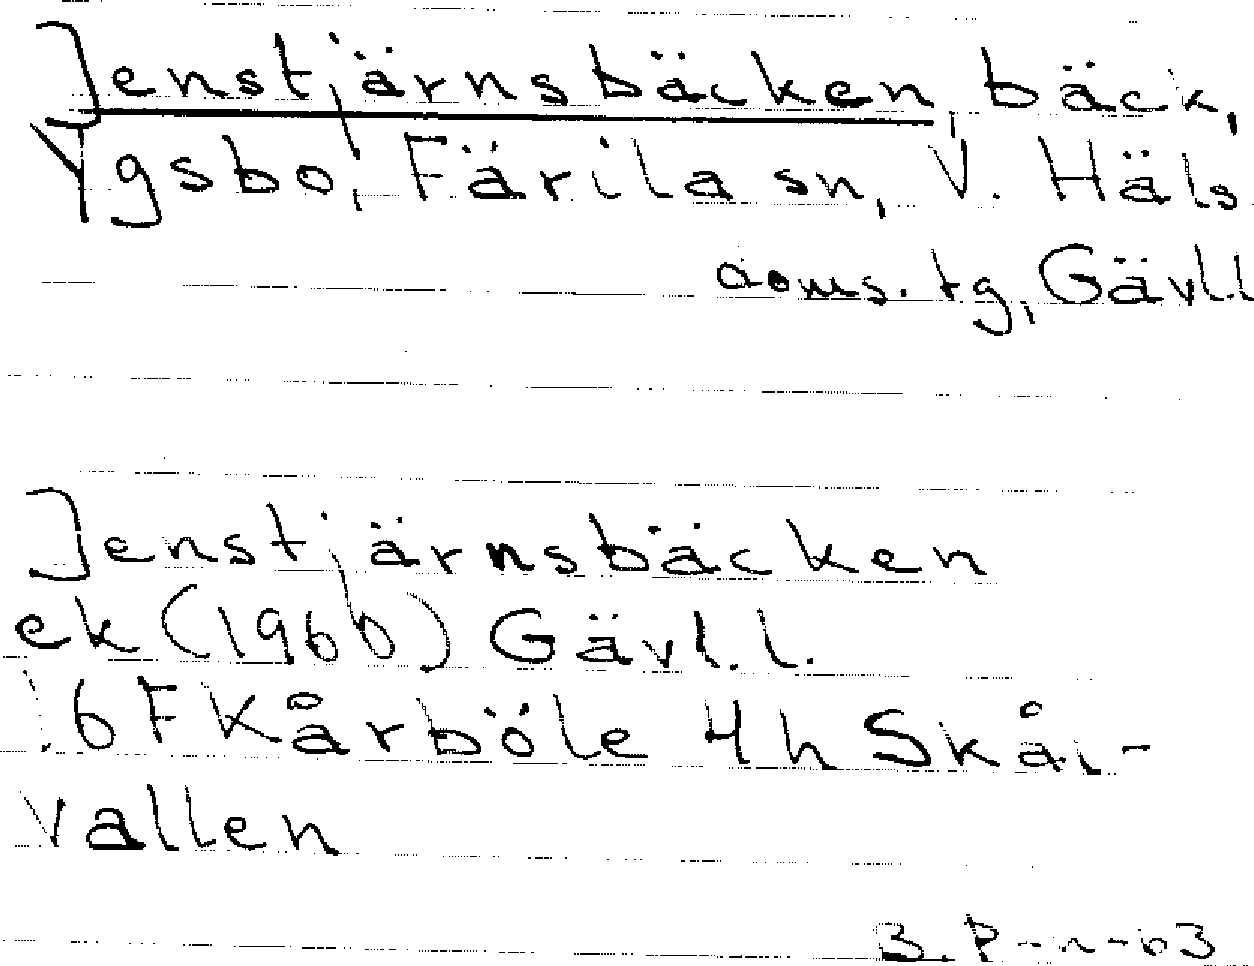 Jenstjärnsbäcken, bäck,
Ygsbo, Färila sn, V. Häls
doms. tg, Gävl.l
Jenstjärnsbäcken
ek (1960) Gävl.l.
16 F Kårböle 4h Skål-
vallen